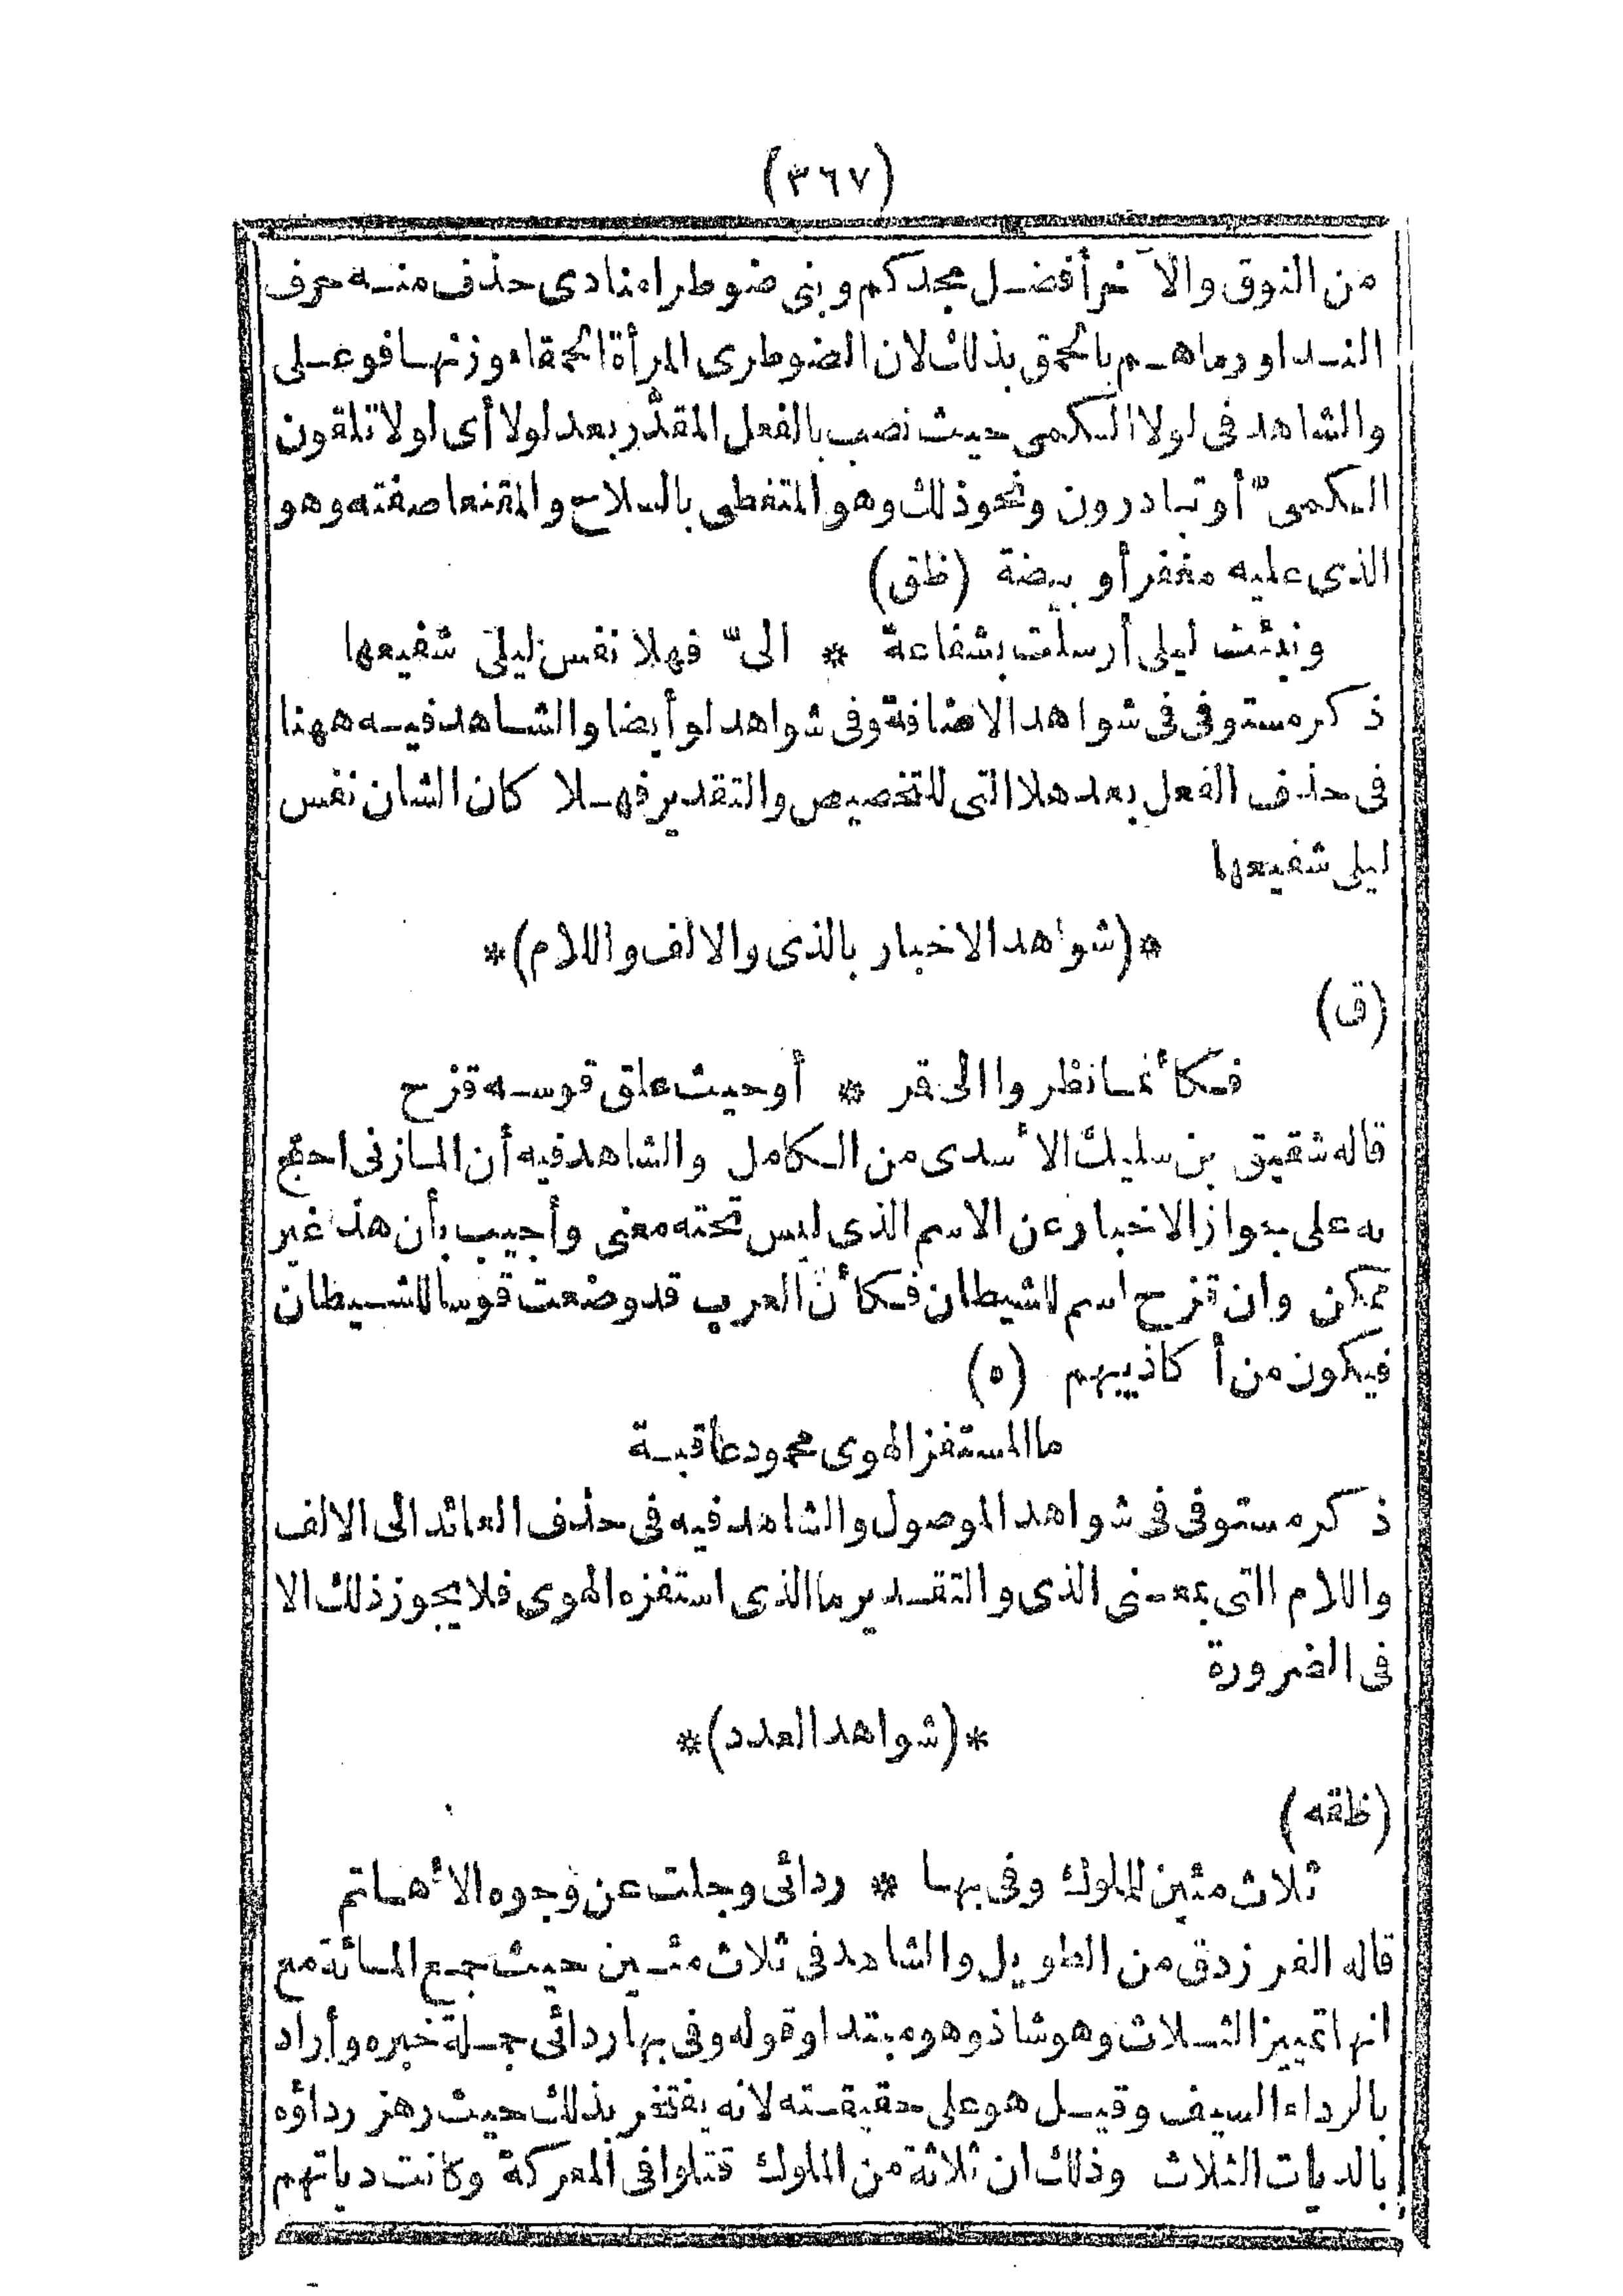 (٣٦٧)
من النوق والآخر أفضل مجدكم وبني ضوطرا منادى حذف منه حرف
النداء ورماهم بالحمق بذلك لان الضوطرى المرأة الحمقاء وزنها فوعلى
والشاهد فى لولا الكمى حيث نصب بالفعل المقدّر بعد لولا أى لولا تلقون
الكمىّ أو تبادرون ونحو ذلك وهو المتغطى بالسلاح والمقنعا صفته وهو
الذى عليه مغفر أو بيضة (ظق)
ونبئت ليلى أرسلت بشفاعة * الىّ فهلا نفس ليلى شفيعها
ذكر مستوفى فى شواهد الاضافة وفى شواهد لو أيضا والشاهد فيه ههنا
فى حذف الفعل بعد هلا التى للتخصيص والتقدير فهلا كان الشان نفس
ليلى شفيعها
*(شواهد الاخبار بالذى والالف واللام)*
(ق)
فكأنما نظروا الى قمر * أو حيث علق قوسه قزح
قاله شقيق بن سليك الأسدى من الكامل والشاهد فيه أن المازنى احتج
به على جواز الاخبار عن الاسم الذى ليس تحته معنى وأجيب بأن هذا غير
ممكن وان قزح اسم للشيطان فكأنّ العرب قد وضعت قوسا للشيطان
فيكون من أكاذيبهم (ه)
ما المستفز الهوى محمود عاقبة
ذكر مستوفى فى شواهد الموصول والشاهد فيه فى حذف العائد الى الالف
واللام التى بمعنى الذى والتقدير ما الذى استفزه الهوى فلا يجوز ذلك الا
فى الضرورة
*(شواهد العدد)*
(ظقه)
ثلاث مئين للملوك وفى بها * ردائى وجلت عن وجوه الأهاتم
قاله الفرزدق من الطويل والشاهد فى ثلاث مئين حيث جمع المائة مع
انها تمييز الثلاث وهو شاذ وهو مبتدا وقوله وفى بها ردائى جملة خبره وأراد
بالرداء السيف وقيل هو على حقيقته لانه يفتخر بذلك حيث رهن رداؤه
بالديات الثلاث وذلك ان ثلاثة من الملوك قتلوا فى المعركة وكانت دياتهم